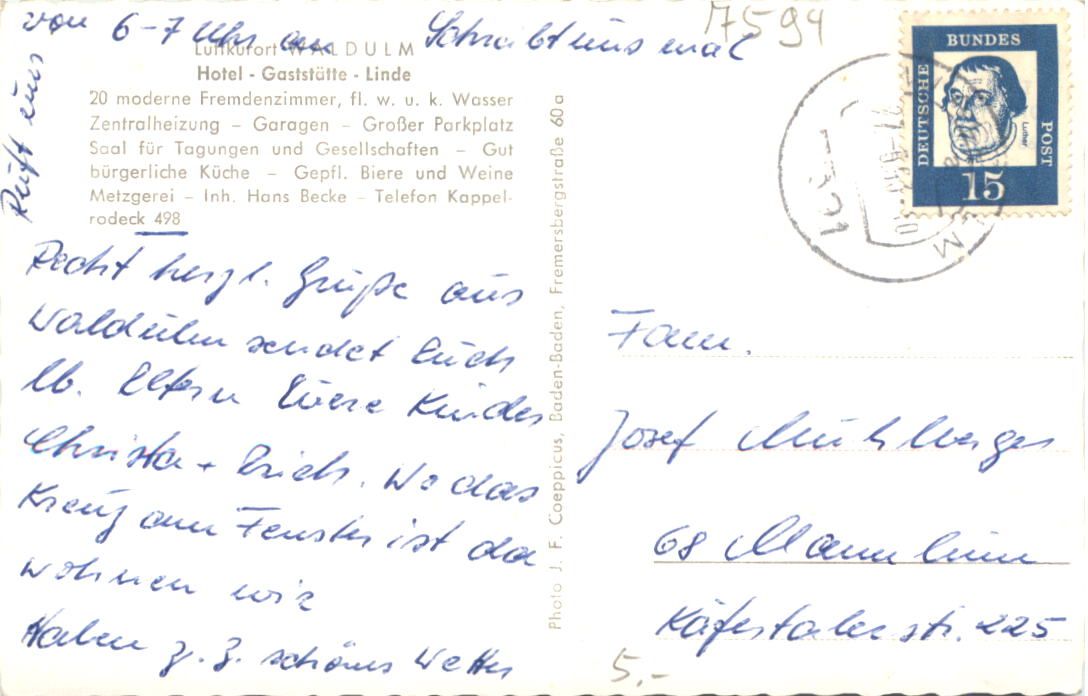 von 6-7 Uhr an Schreibt uns mal
Ruft uns
7594
Luftkurort WALDULM
Hotel - Gaststätte - Linde
20 moderne Fremdenzimmer, fl. w. u. k. Wasser
Zentralheizung – Garagen – Großer Parkplatz
Saal für Tagungen und Gesellschaften – Gut
bürgerliche Küche – Gepfl. Biere und Weine
Metzgerei – Inh. Hans Becke – Telefon Kappel-
rodeck 498
Recht herzl. Grüße aus
Waldulm sendet Euch
lb. Eltern Eure Kinder
Christa + Erich. Wo das
Kreuz am Fenster ist da
wohnen wir
Haben z. Z. schönes Wetter
Photo J. F. Coeppicus, Baden-Baden, Fremersbergstraße 60a
DEUTSCHE
BUNDES
POST
Luther
15
Fam.
Josef Mühlberger
68 Mannheim
Käfertalerstr. 225
5.-